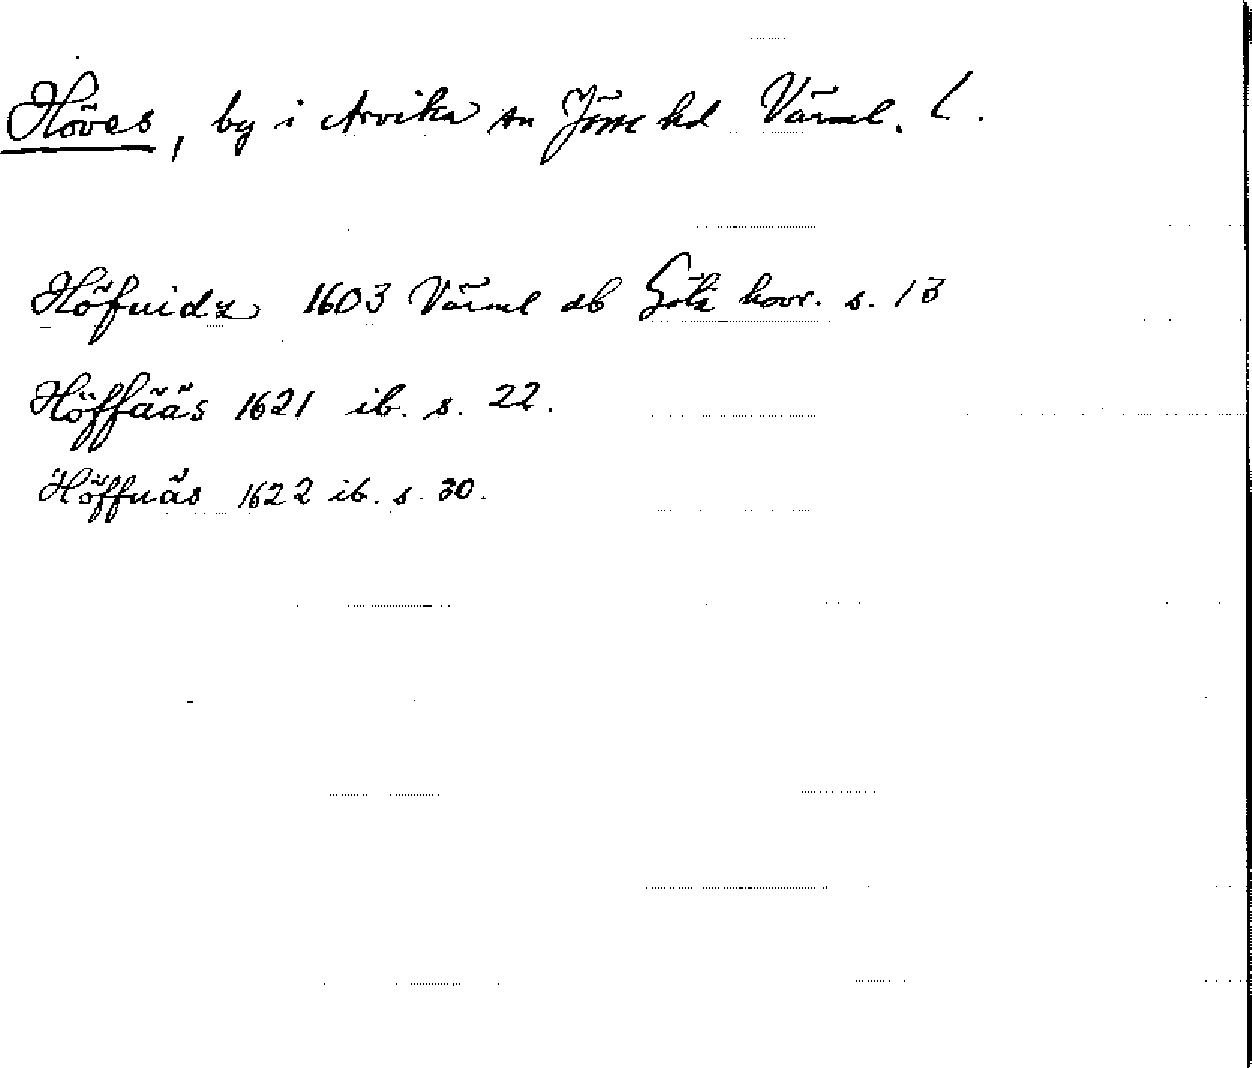 Höves, by i Arvika sn Jösse hd Värml. l.
Höfnidz 1603 Värml db Göta hovr. s. 13
Höffääs 1621 ib. s. 22.
Höffnäs 1622 ib. s. 30.